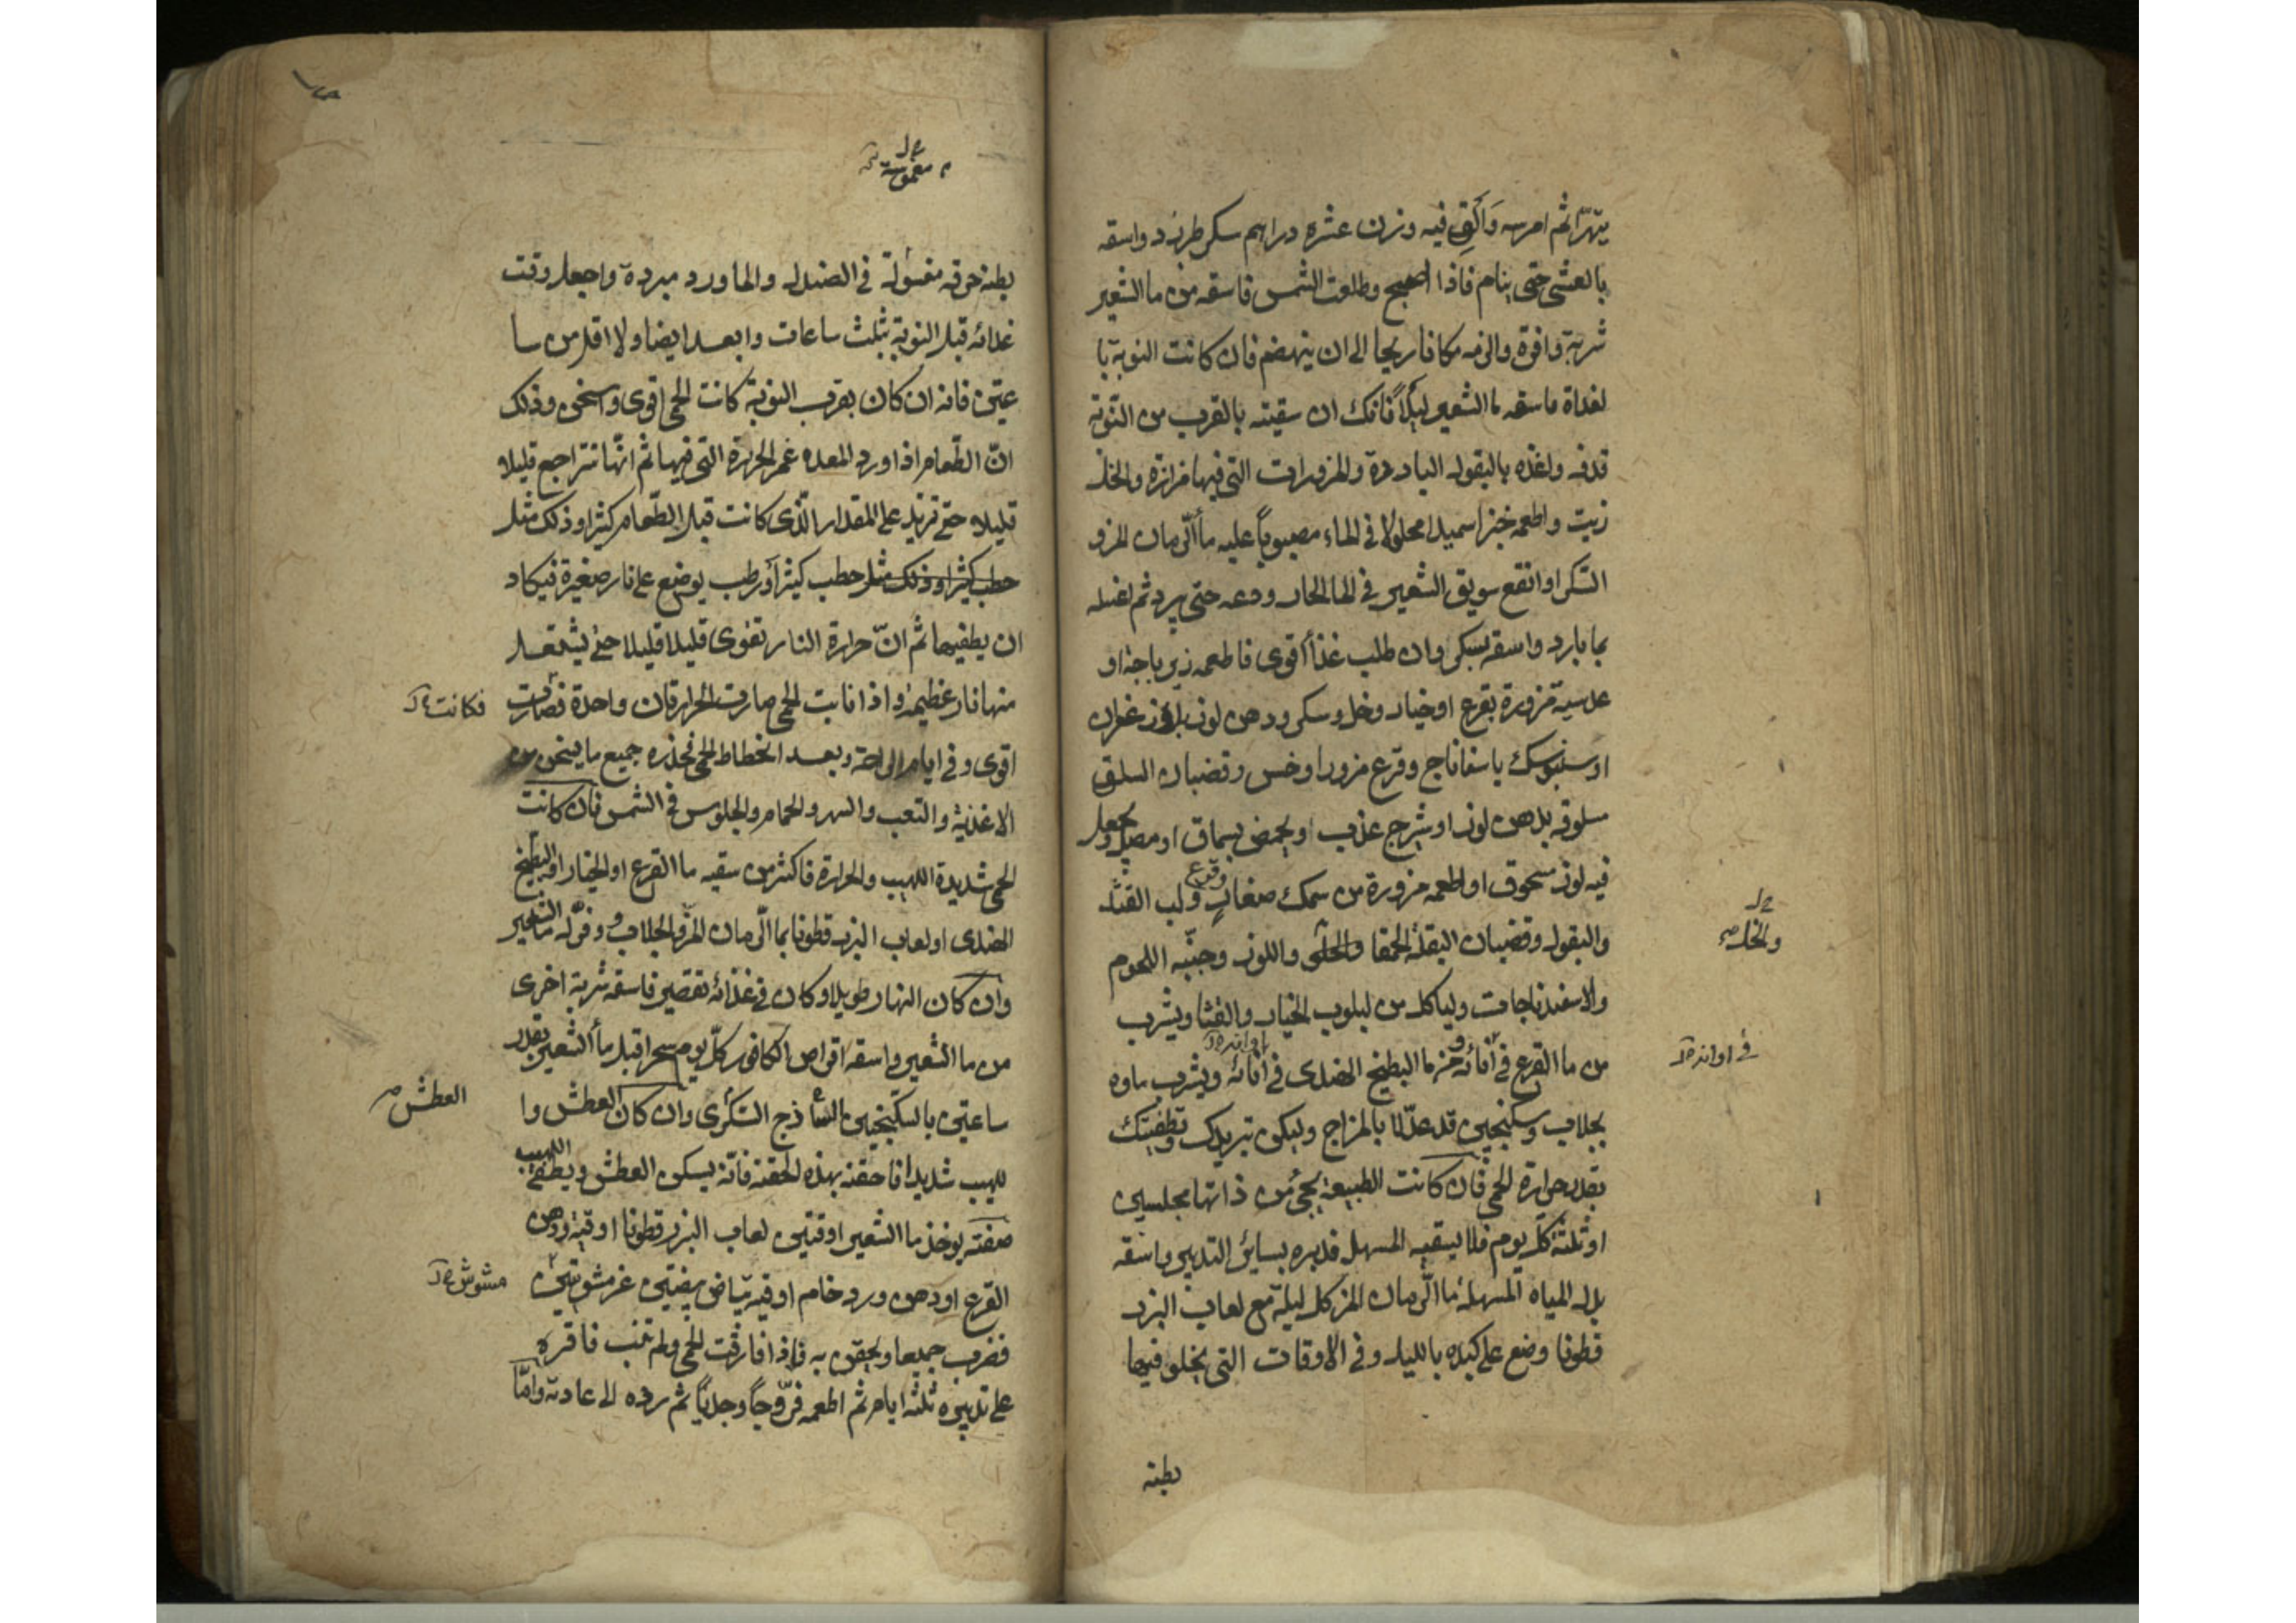 يتهرّا ثم امرسه وَالَقِ فيه وزن عشره دراهم سكر طبرزد واسقه
بالعشى حتى ينام فاذا اصبح وطلعت الشمس فاسقه من ما الشعير
شربة وافرة والزمه مكانا ريحا الى ان ينهضم فان كانت النوبة با
لغداة فاسقه ما الشعير ليلاً فانك ان سقيته بالقرب من النوبة
قذفه واغذه بالبقول الباردة والمزورات التى فيها مزازة والخل
زيت واطعمه خبزا سميدا محلولا فى الماء مصبوباً عليه ما الرمان المز و
السكر او انقع سويق الشعير فى الما الحار ودعه حتى يبرد ثم اغسله
بما بارد واسقه بسكر وان طلب غذأ أقوى فاطعمه زيرباجة او
عدسية مزورة بقرع او خيار وخل وسكر ودهن لوز بلا زعفران
او سنبوسك باسفاناج وقرع مزورا وخس وقضبان السلق
مسلوقه بدهن لوز او شيرج عذب او يحمض بسماق او مصل ويجعل
فيه لوز مسحوق او اطعمه مزورة من سمك صغار وقرع ولب القثد
والبقول وقضبان البقلة الحمقا والخل واللوز وجنّبه اللحوم
والخل صح
والاسفيدباجات ولياكل من لبلوب الخيار والقثا ويشرب
من ما القرع فى أنائه ومن ما البطيخ الهندى فى أنائه ويشرب ماوه
فى اوانه
بجلاب وسكنجبين قد عدّلا بالمزاج وليكن تبريدك وتطفيتك
بقدر حرارة الحمى فان كانت الطبيعة يجئ من ذاتها مجلسين
او ثلثة كلّ يوم فلا يسقيه المسهل فدبره بسائر التدبير واسقه
بدل المياه المسهلة ما الرمان المز كل ليلة مع لعاب البزر
قطونا وضع على كبده بالليل وفى الاوقات التى يخلو فيها
بطنه
مغموسة
بطنه خرقه مغسولة فى الصندل والماورد مبردة واجعل وقت
غذائه قبل النوبة بثلث ساعات وابعد ايضا ولا اقل من سا
عتين فانه ان كان بقرب النوبة كانت الحمى اقوى واسخن وذلك
انّ الطّعام اذا ورد المعده غمر الحرارة التى فيها ثم انّها تتراجع قليلا
قليلا حتى تزيد على المقدار الّذى كانت قبل الطّعام كثيرا وذلك مثل
حطب كثيرا وذلك مثل حطب كثير أو رطب يوضع على نار صغيرة فيكاد
ان يطفيها ثم انّ حرارة النار تقوى قليلا قليلا حتى يشتعل
منها نار عظيمة واذا نابت الحمى صارت الحرارتان واحدة فصارت
فكانت
اقوى وفى ايام الراحة وبعد انحطاط الحمى فحذره جميع ما يسخن من
الاغذية والتعب والسهر والحمام والجلوس فى الشمس فان كانت
الحمى شديدة اللهيب والحرارة فاكثر من سقيه ما القرع او الخيار او البطيخ
الهندى او لعاب البزر قطونا بما الرمان المز والجلاب وفرّله ما الشعير
وان كان النهار طويلا وكان فى غذائه تقصير فاسقه شربة اخرى
من ما الشعير واسقه اقراص الكافور كلّ يوم سحرا قبل ما الشعير بقدر
ساعتين بالسكنجبين الساذج السّكّرى وان كان العطش وا
العطش صح
للهيب شديدا فاحقنه بهذه الحقنة فانّه يسكن العطش ويطفئ اللهيب
صفته يوخذ ما الشعير اوقتين لعاب البزر قطونا اوقية ودهن
القرع او دهن ورد خام اوقيه بياض بيضتين غير مشوتين
مشوش
فضرب جميعا ويحقن به فاذا فارقت الحمى ولم تنب فاقره
على تدبيره ثلثه ايام ثم اطعمه فرّوجاً وجدياً ثم رده الى عادته وامّا